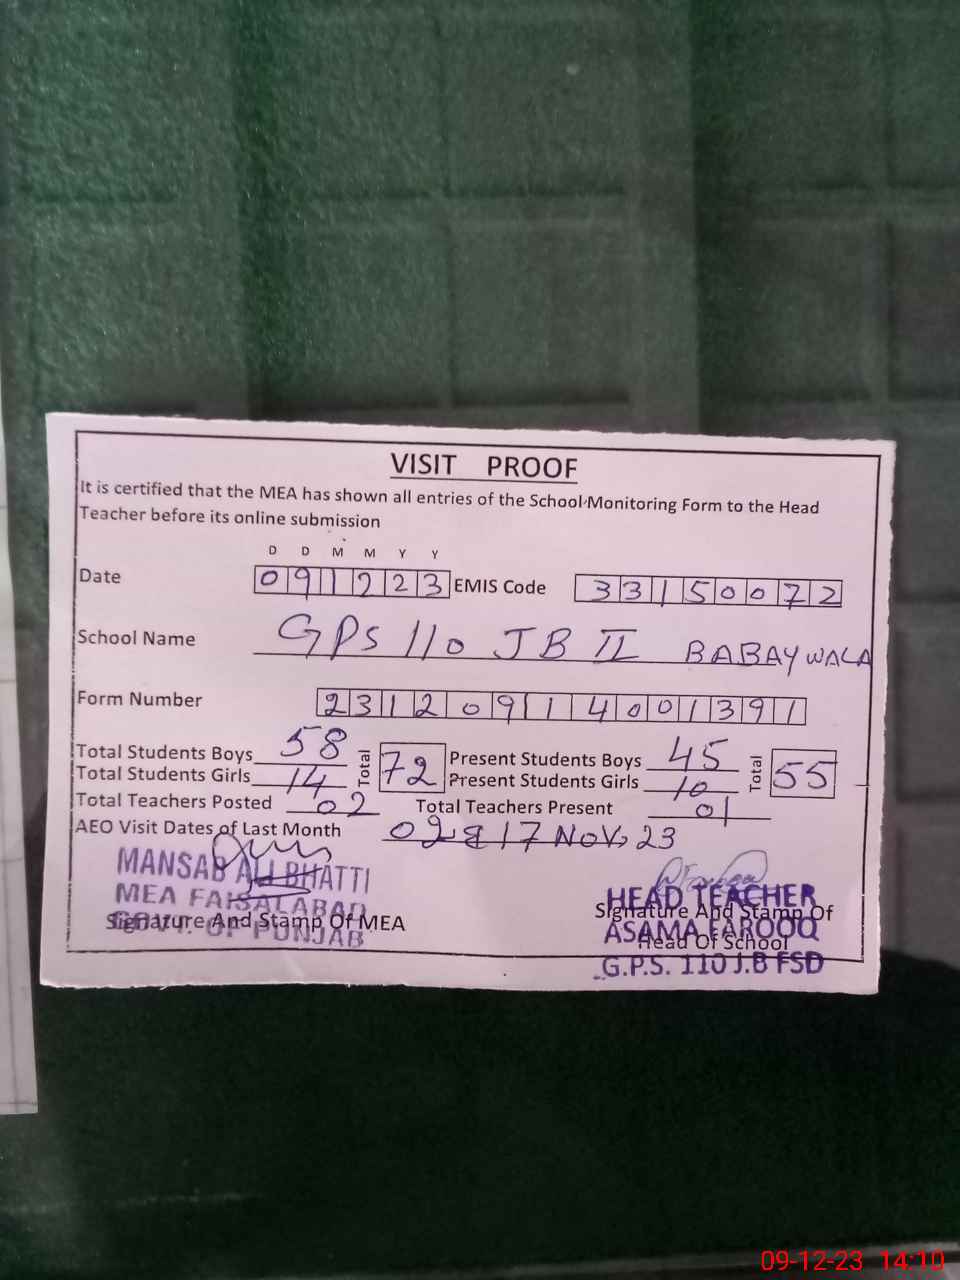 VISIT PROOF
It is certified that the MEA has shown all entries of the School Monitoring Form to the Head
Teacher before its online submission
D D M M Y Y
Date 091223 EMIS Code 33150072
School Name GPS 110 JB II BABAY WALA
Form Number 231209114001391
Total Students Boys 58 Total 72 Present Students Boys 45 Total 55
Total Students Girls 14 Present Students Girls 10
Total Teachers Posted 02 Total Teachers Present 01
AEO Visit Dates of Last Month 02 & 17 NOV, 23
MANSAB ALI BHATTI
MEA FAISALABAD
GOVT. OF PUNJAB
Signature And Stamp Of MEA
HEAD TEACHER
Signature And Stamp Of
ASAMA FAROOQ
Head Of School
G.P.S. 110 J.B FSD
09-12-23 14:10